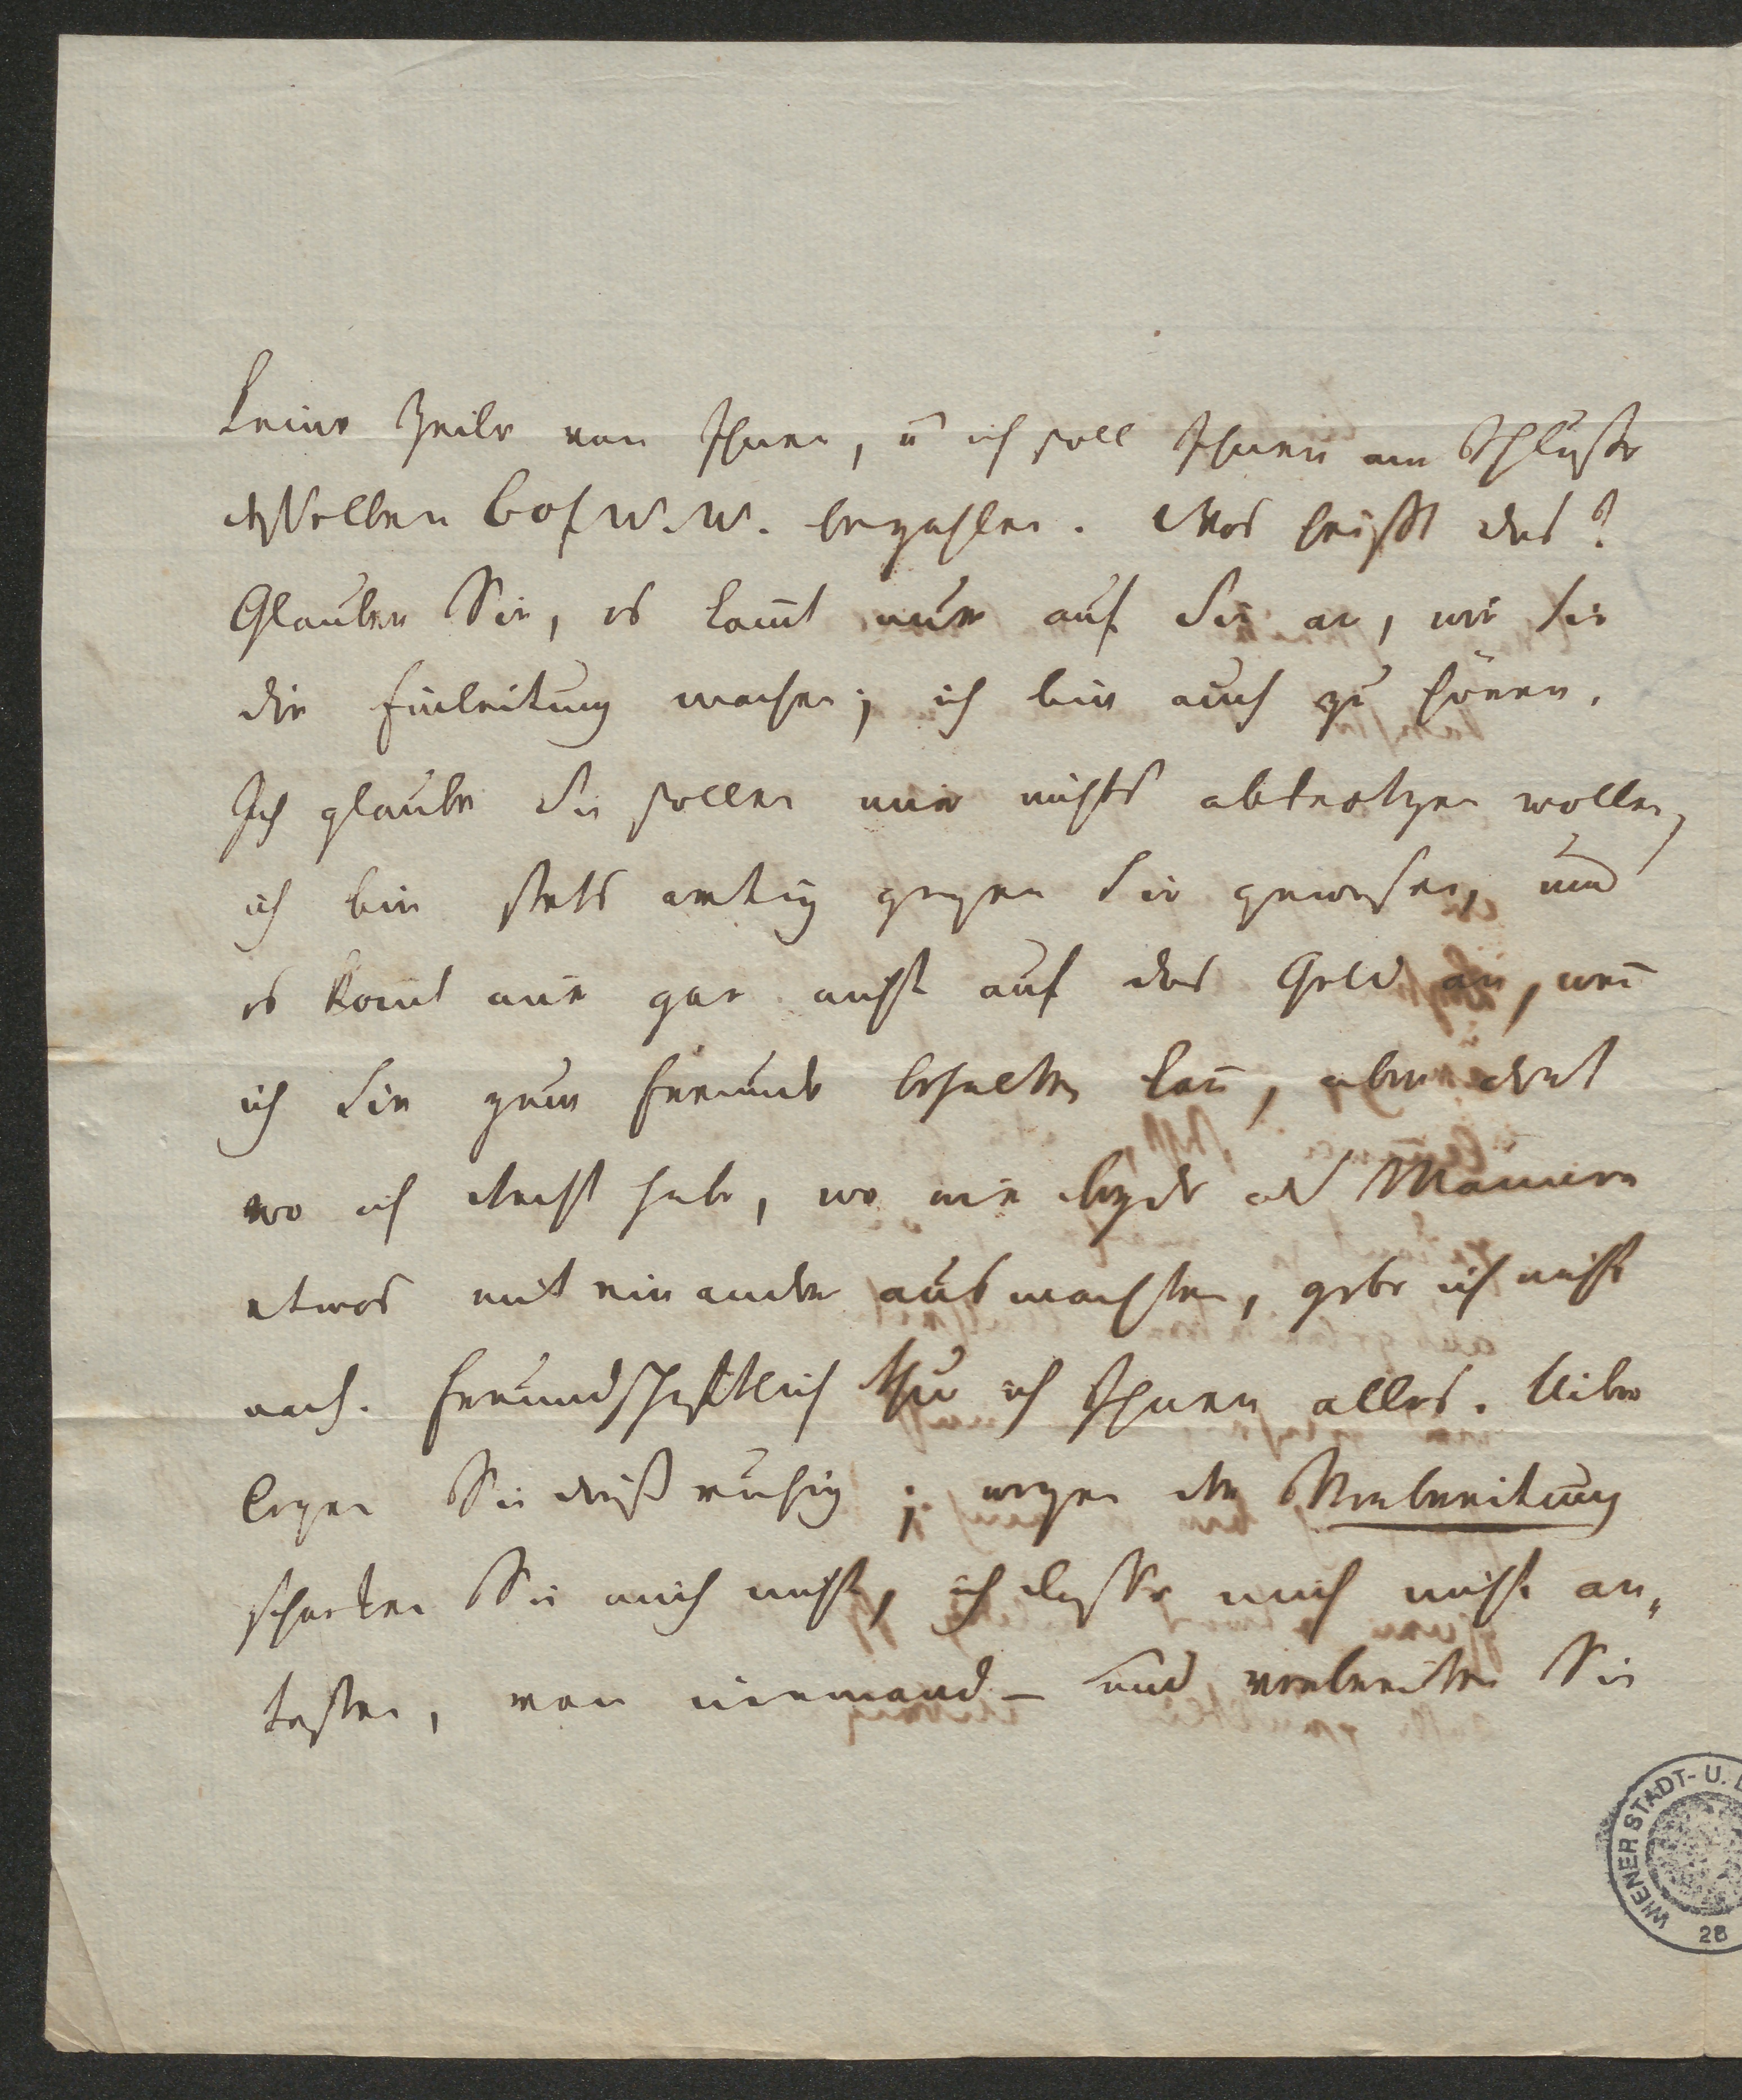 Keine Zeile von Ihnen, ū ich soll Ihnen am Schluße
desselben W. W. bezahlen. Was heißt das?
Glauben Sie, es kom̄t nur auf Sie an, wie Sie
die Einleitung machen; ich bin auch zu hören.
Ich glaube Sie sollen mir nichts abtrotzen wollen,
ich bin stets artig gegen Sie gewesen, und
es kom̄t mir gar nicht auf das Geld an, wen̄
ich Sie zum Freunde behalten kan̄, aber dort
wo ich Recht habe, wo wir beyde als Männer
etwas mit einander ausmachten, gebe ich nicht
nach. Freundschaftlich thu ich Ihnen alles. Über
legen Sie dieß ruhig; wegen der Vorbereitung
Sie mich nicht, ich lasse mich nicht an„
tasten, von niemand – und vorbereiten Sie
WIENER STADT- U. L
28